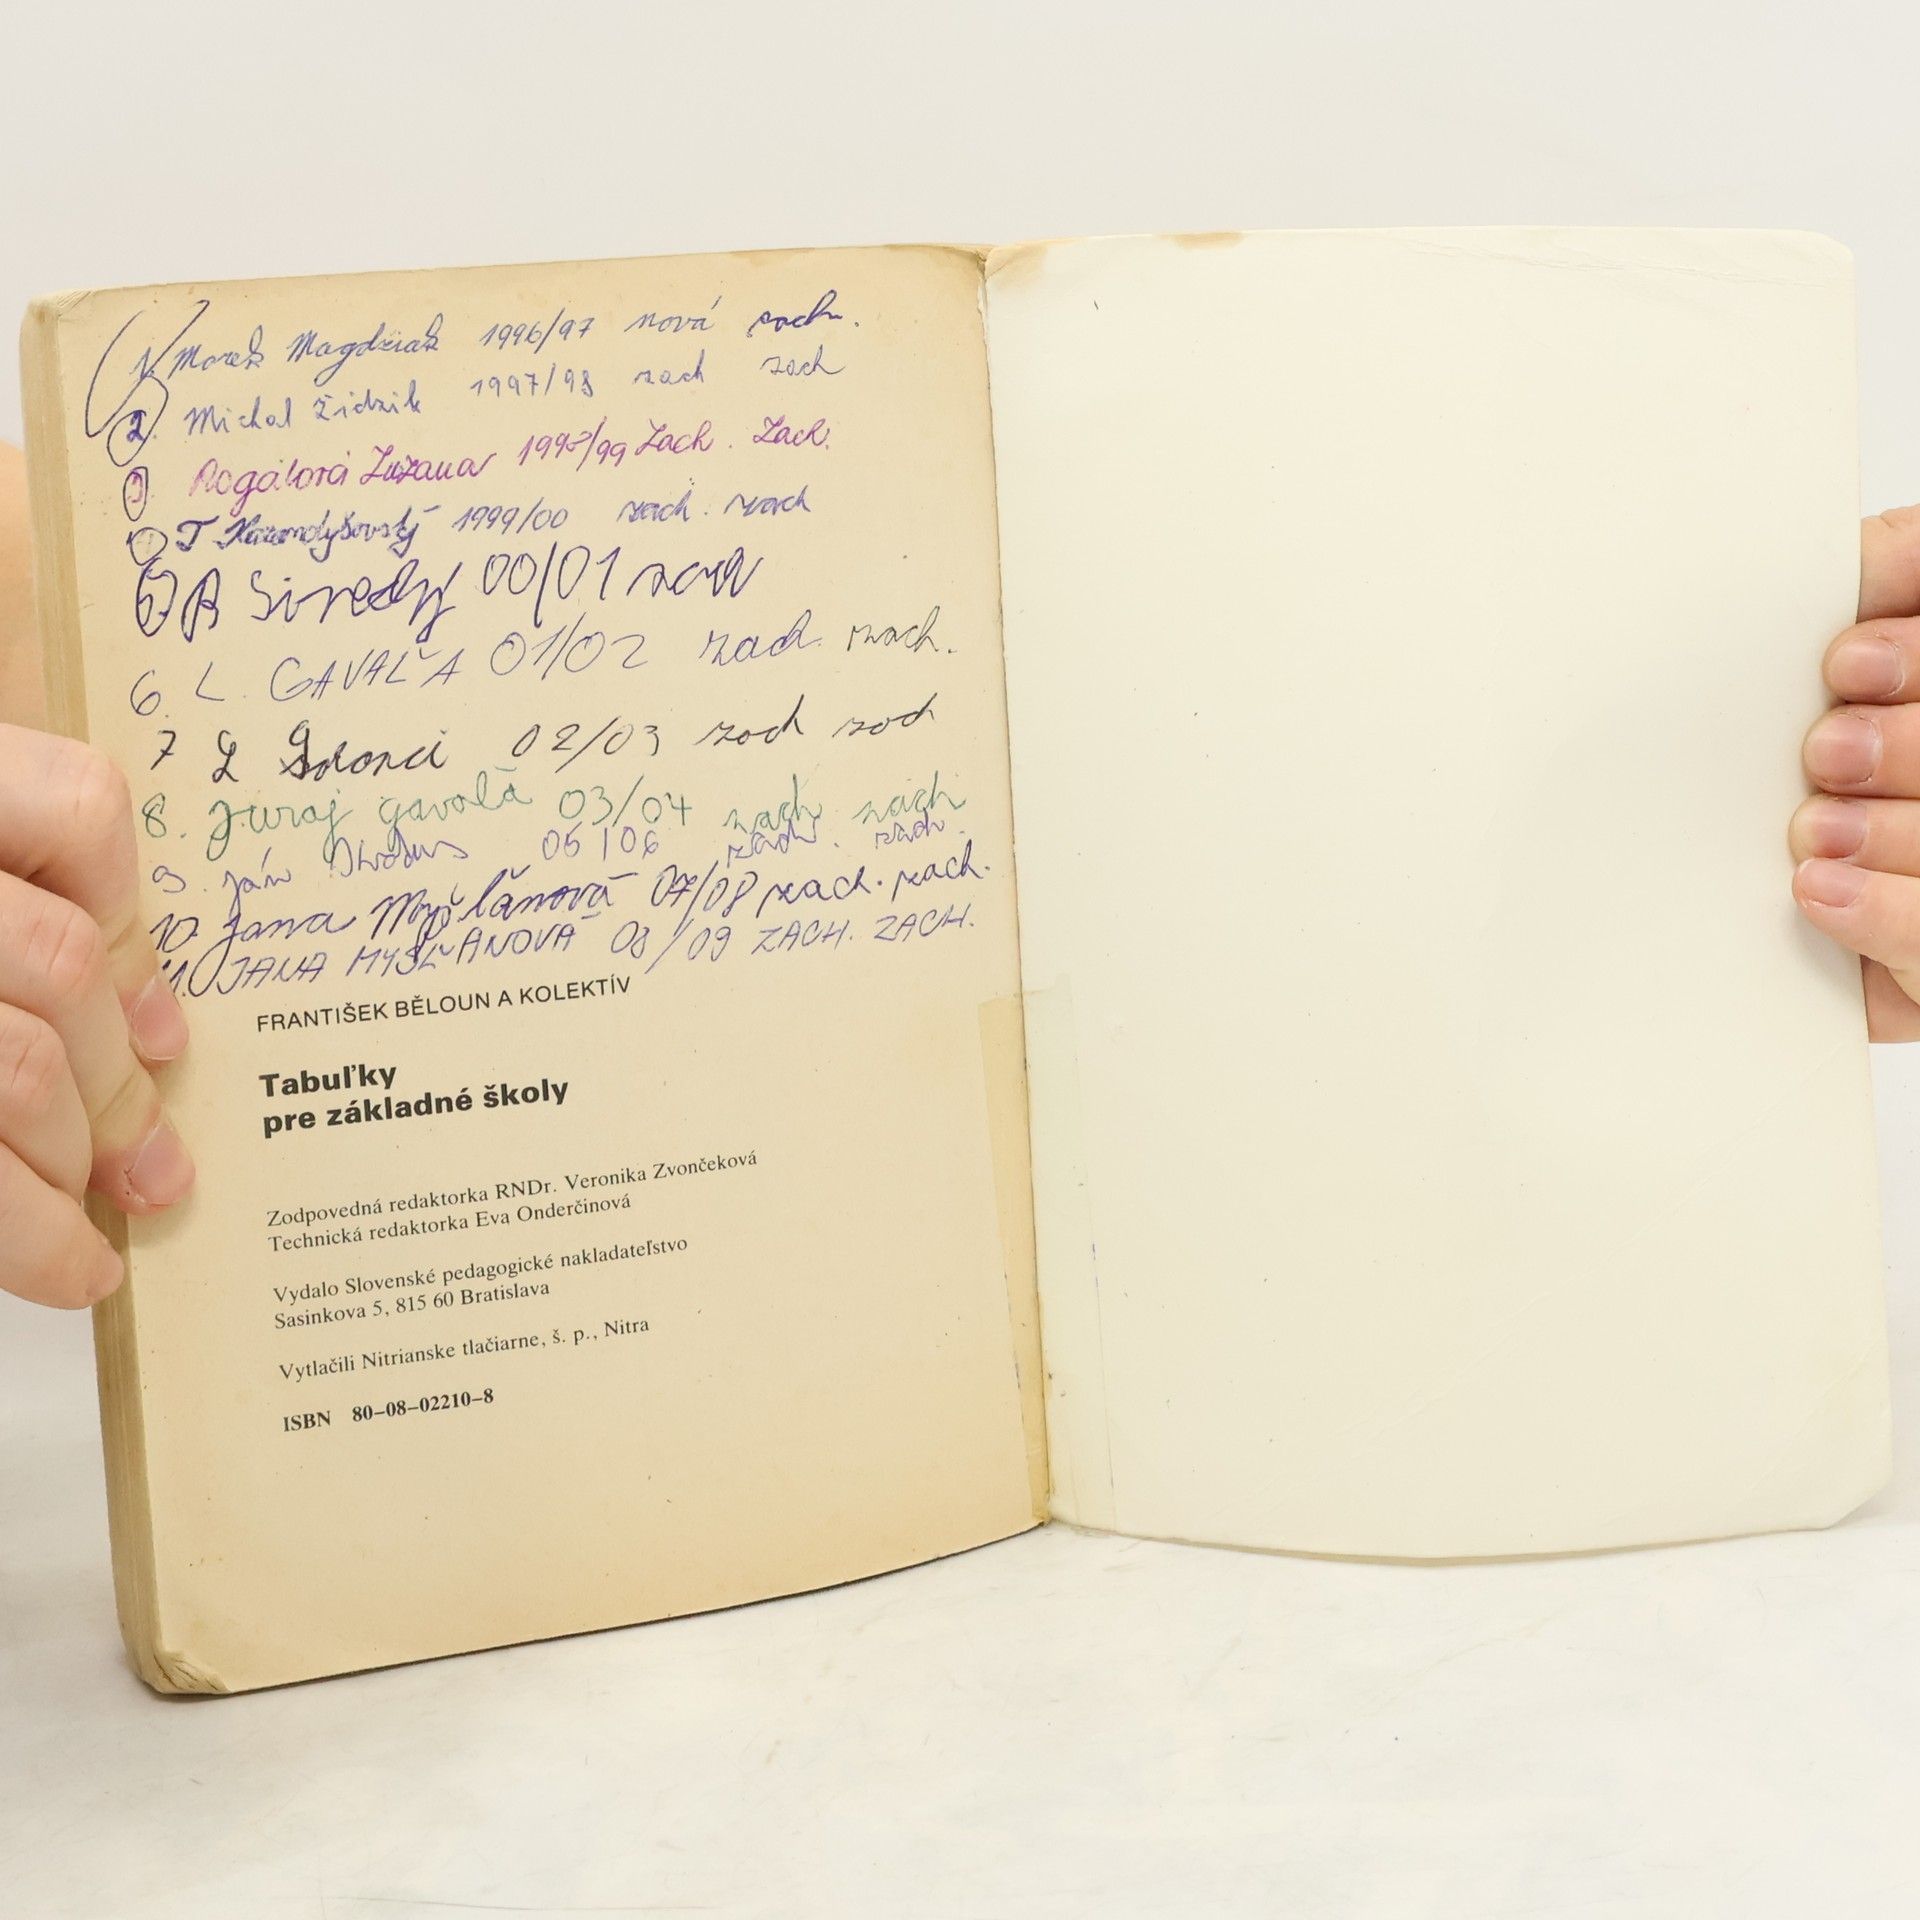 1. Marek Magdziak 1996/97 nová zach.
2. Michal Židzik 1997/98 zach zach
3. Rogálová Zuzana 1998/99 Zach. Zach.
4 T 1999/00 zach. zach
5. B 00/01 zach
6. L. GAVAĽA 01/02 zach. zach.
7 L 02/03 zach zach
8. Juraj Gavaľa 03/04 zach zach
9. Ján 05/06 zach. zach.
10. Jana Mysľanová 07/08 zach. zach.
11. JANA MYSĽANOVÁ 08/09 ZACH. ZACH.
FRANTIŠEK BĚLOUN A KOLEKTÍV
Tabuľky
pre základné školy
Zodpovedná redaktorka RNDr. Veronika Zvončeková
Technická redaktorka Eva Onderčinová
Vydalo Slovenské pedagogické nakladateľstvo
Sasinkova 5, 815 60 Bratislava
Vytlačili Nitrianske tlačiarne, š. p., Nitra
ISBN 80–08–02210–8